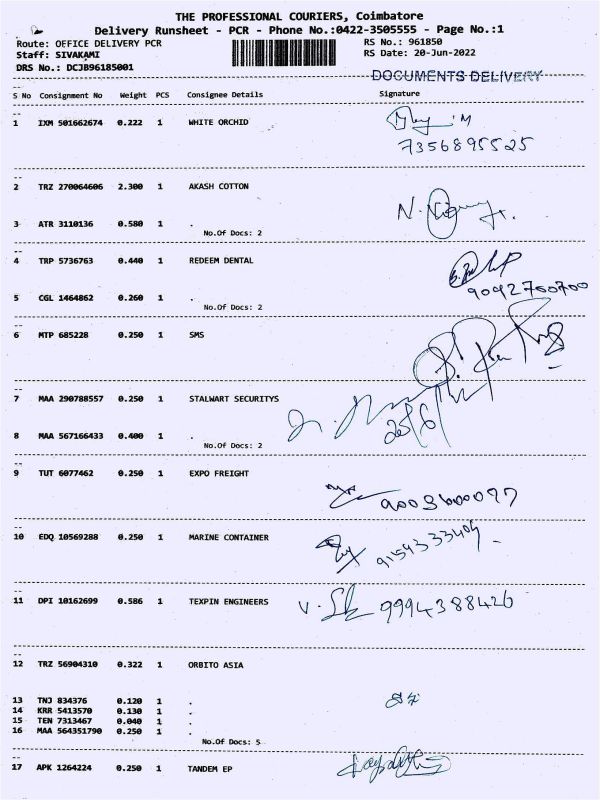 THE PROFESSIONAL COURIERS, Coimbatore
Delivery Runsheet - PCR - Phone No.:0422-3505555 - Page No.:1
Route: OFFICE DELIVERY PCR RS No.: 961850
Staff: SIVAKAMI RS Date: 20-Jun-2022
DRS No.: DCJB96185001
DOCUMENTS DELIVERY
S No Consignment No Weight PCS Consignee Details Signature
1 IXM 501662674 0.222 1 WHITE ORCHID
7356895525
2 TRZ 270064606 2.300 1 AKASH COTTON
3 ATR 3110136 0.580 1 .
No.Of Docs: 2
4 TRP 5736763 0.440 1 REDEEM DENTAL
9092700700
5 CGL 1464862 0.260 1 .
No.Of Docs: 2
6 MTP 685228 0.250 1 SMS
7 MAA 290788557 0.250 1 STALWART SECURITYS
8 MAA 567166433 0.400 1 .
No.Of Docs: 2
9 TUT 6077462 0.250 1 EXPO FREIGHT
9003600097
10 EDQ 10569288 0.250 1 MARINE CONTAINER
11 DPI 10162699 0.586 1 TEXPIN ENGINEERS
9994388426
12 TRZ 56904310 0.322 1 ORBITO ASIA
13 TNJ 834376 0.120 1 .
14 KRR 5413570 0.130 1 .
15 TEN 7313467 0.040 1 .
16 MAA 564351790 0.250 1 .
No.Of Docs: 5
17 APK 1264224 0.250 1 TANDEM EP